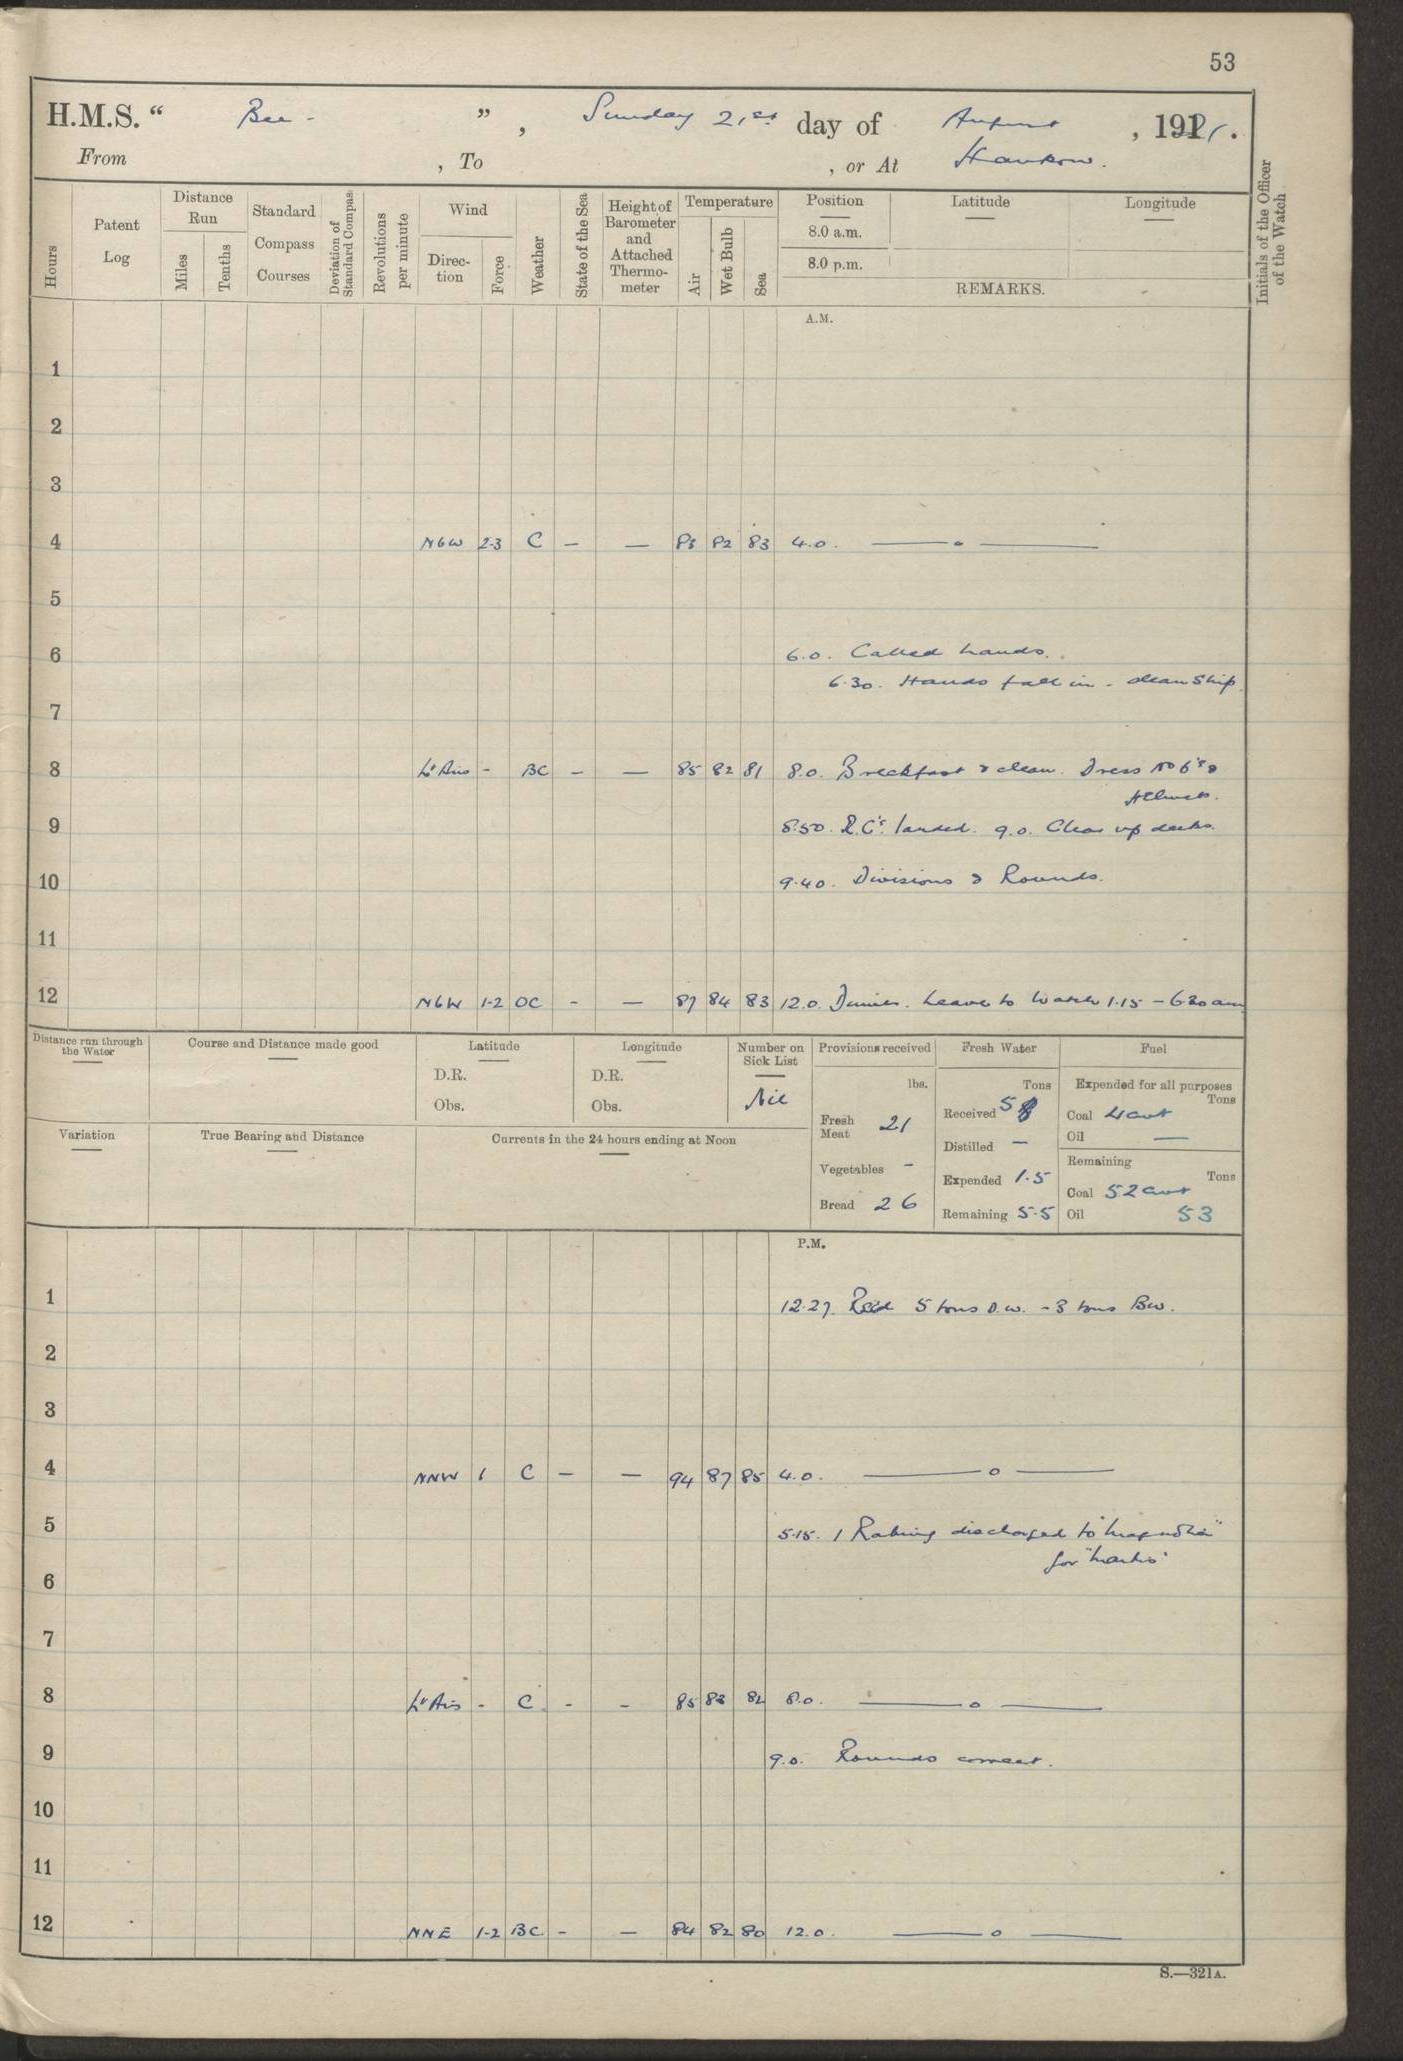 53
H.M.S. " Bee - " , Sunday 21st day of August , 1921.
From , To , or At Hankow.
Hours
Patent Log
Distance Run
Miles
Tenths
Standard Compass Courses
Deviation of Standard Compass
Revolutions per minute
Wind
Direction
Force
Weather
State of the Sea
Height of Barometer and Attached Thermometer
Temperature
Air
Wet Bulb
Sea
Position
8.0 a.m.
8.0 p.m.
Latitude
Longitude
REMARKS.
Initials of the Officer of the Watch
A.M.
1
2
3
4 NbW 2-3 C - — 83 82 83 4.0. — o —
5
6 6.0. Called hands.
6.30. Hands fall in - clean Ship.
7
8 Lt Airs - BC - — 85 82 81 8.0. Breakfast & clean. Dress No 6's &
Helmets.
9 8.50. R.C's. landed. 9.0. Clear up decks.
10 9.40. Divisions & Rounds.
11
12 NbW 1-2 OC - — 87 84 83 12.0. Dinner. Leave to Watch 1.15 - 6.30 am
Distance run through the Water
Course and Distance made good
Latitude
D.R.
Obs.
Longitude
D.R.
Obs.
Number on Sick List
Nil
Provisions received
lbs.
Fresh Meat 21
Vegetables -
Bread 26
Fresh Water
Tons
Received 5
Distilled —
Expended 1.5
Remaining 5.5
Fuel
Expended for all purposes
Tons
Coal 4 cwt
Oil —
Remaining
Tons
Coal 52 cwt
Oil 53
Variation
True Bearing and Distance
Currents in the 24 hours ending at Noon
P.M.
1 12.27. Rec'd 5 tons D.W. - 3 tons BW.
2
3
4 NNW 1 C - — 94 87 85 4.0. — o —
5 5.15. 1 Rating discharged to "Magnolia"
for "Mantis"
6
7
8 Lt Airs - C - - 85 83 82 8.0. — o —
9 9.0. Rounds correct.
10
11
12 NNE 1-2 BC - — 84 82 80 12.0. — o —
S.—321A.